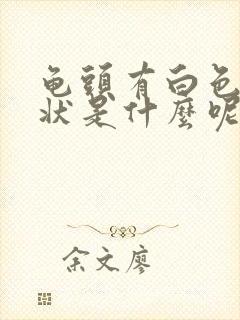 龟頭有白色
狀是什麼呢
余文廖